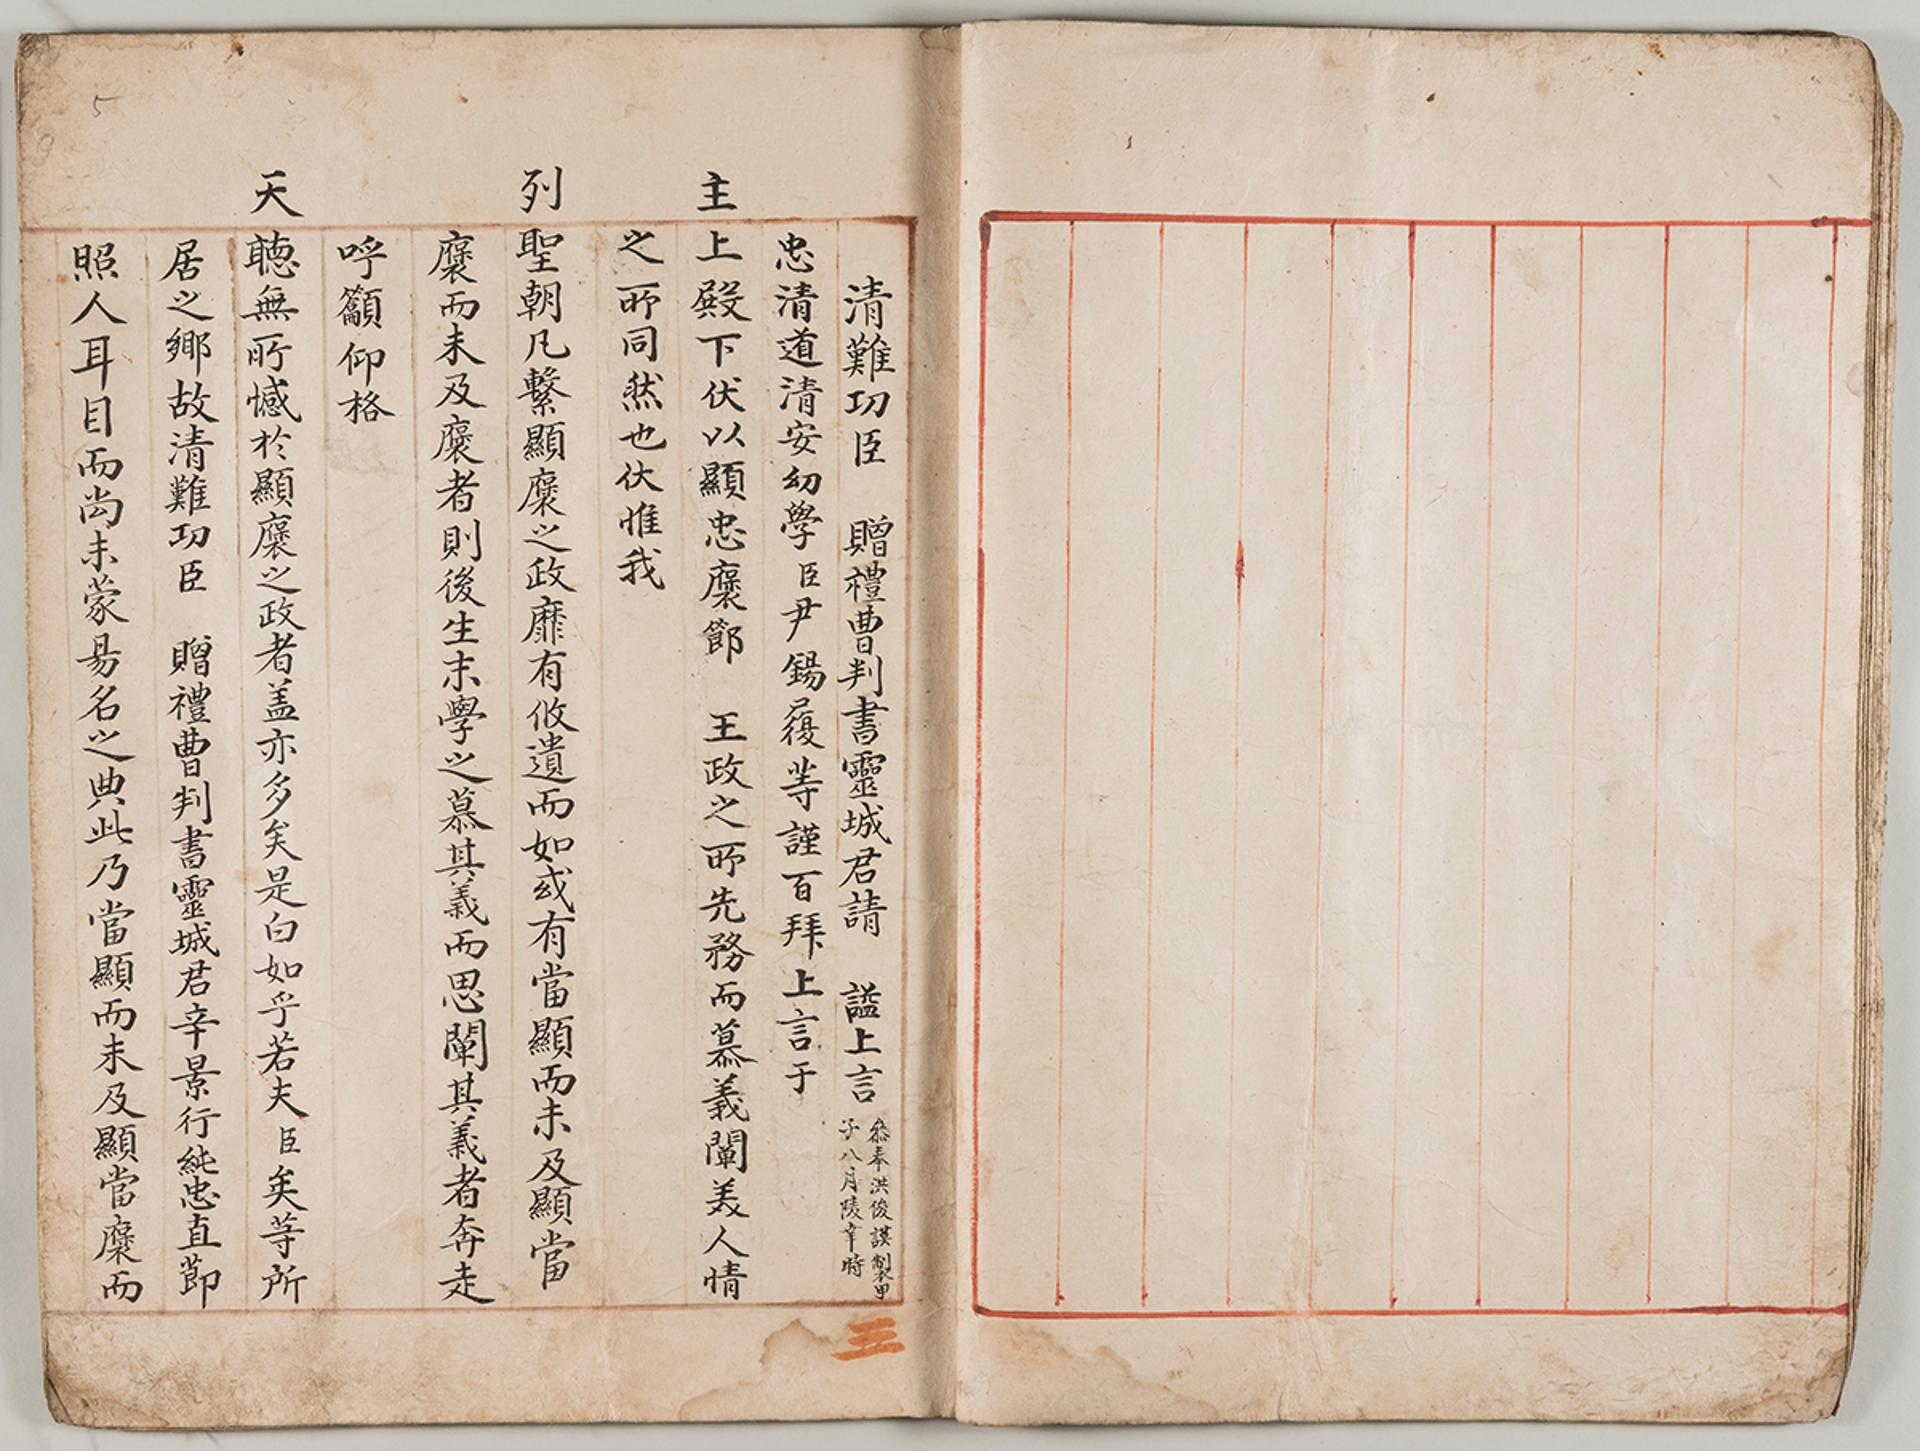 清難功臣 贈禮曹判書靈城君請 謚上言 叅奉洪俊謨製甲
子八月陵幸時
忠清道清安幼學臣尹錫履等謹百拜上言于
主上殿下伏以顯忠褒節 王政之所先務而慕義闡美人情
之所同然也伏惟我
列聖朝凡繫顯褒之政靡有攸遺而如或有當顯而未及顯當
褒而未及褒者則後生末學之慕其義而思闡其義者奔走
呼籲仰格
天聽無所憾於顯褒之政者盖亦多矣是白如乎若夫臣矣等所
居之鄉故清難功臣 贈禮曹判書靈城君辛景行純忠直節
照人耳目而尚未蒙易名之典此乃當顯而未及顯當褒而
三
5